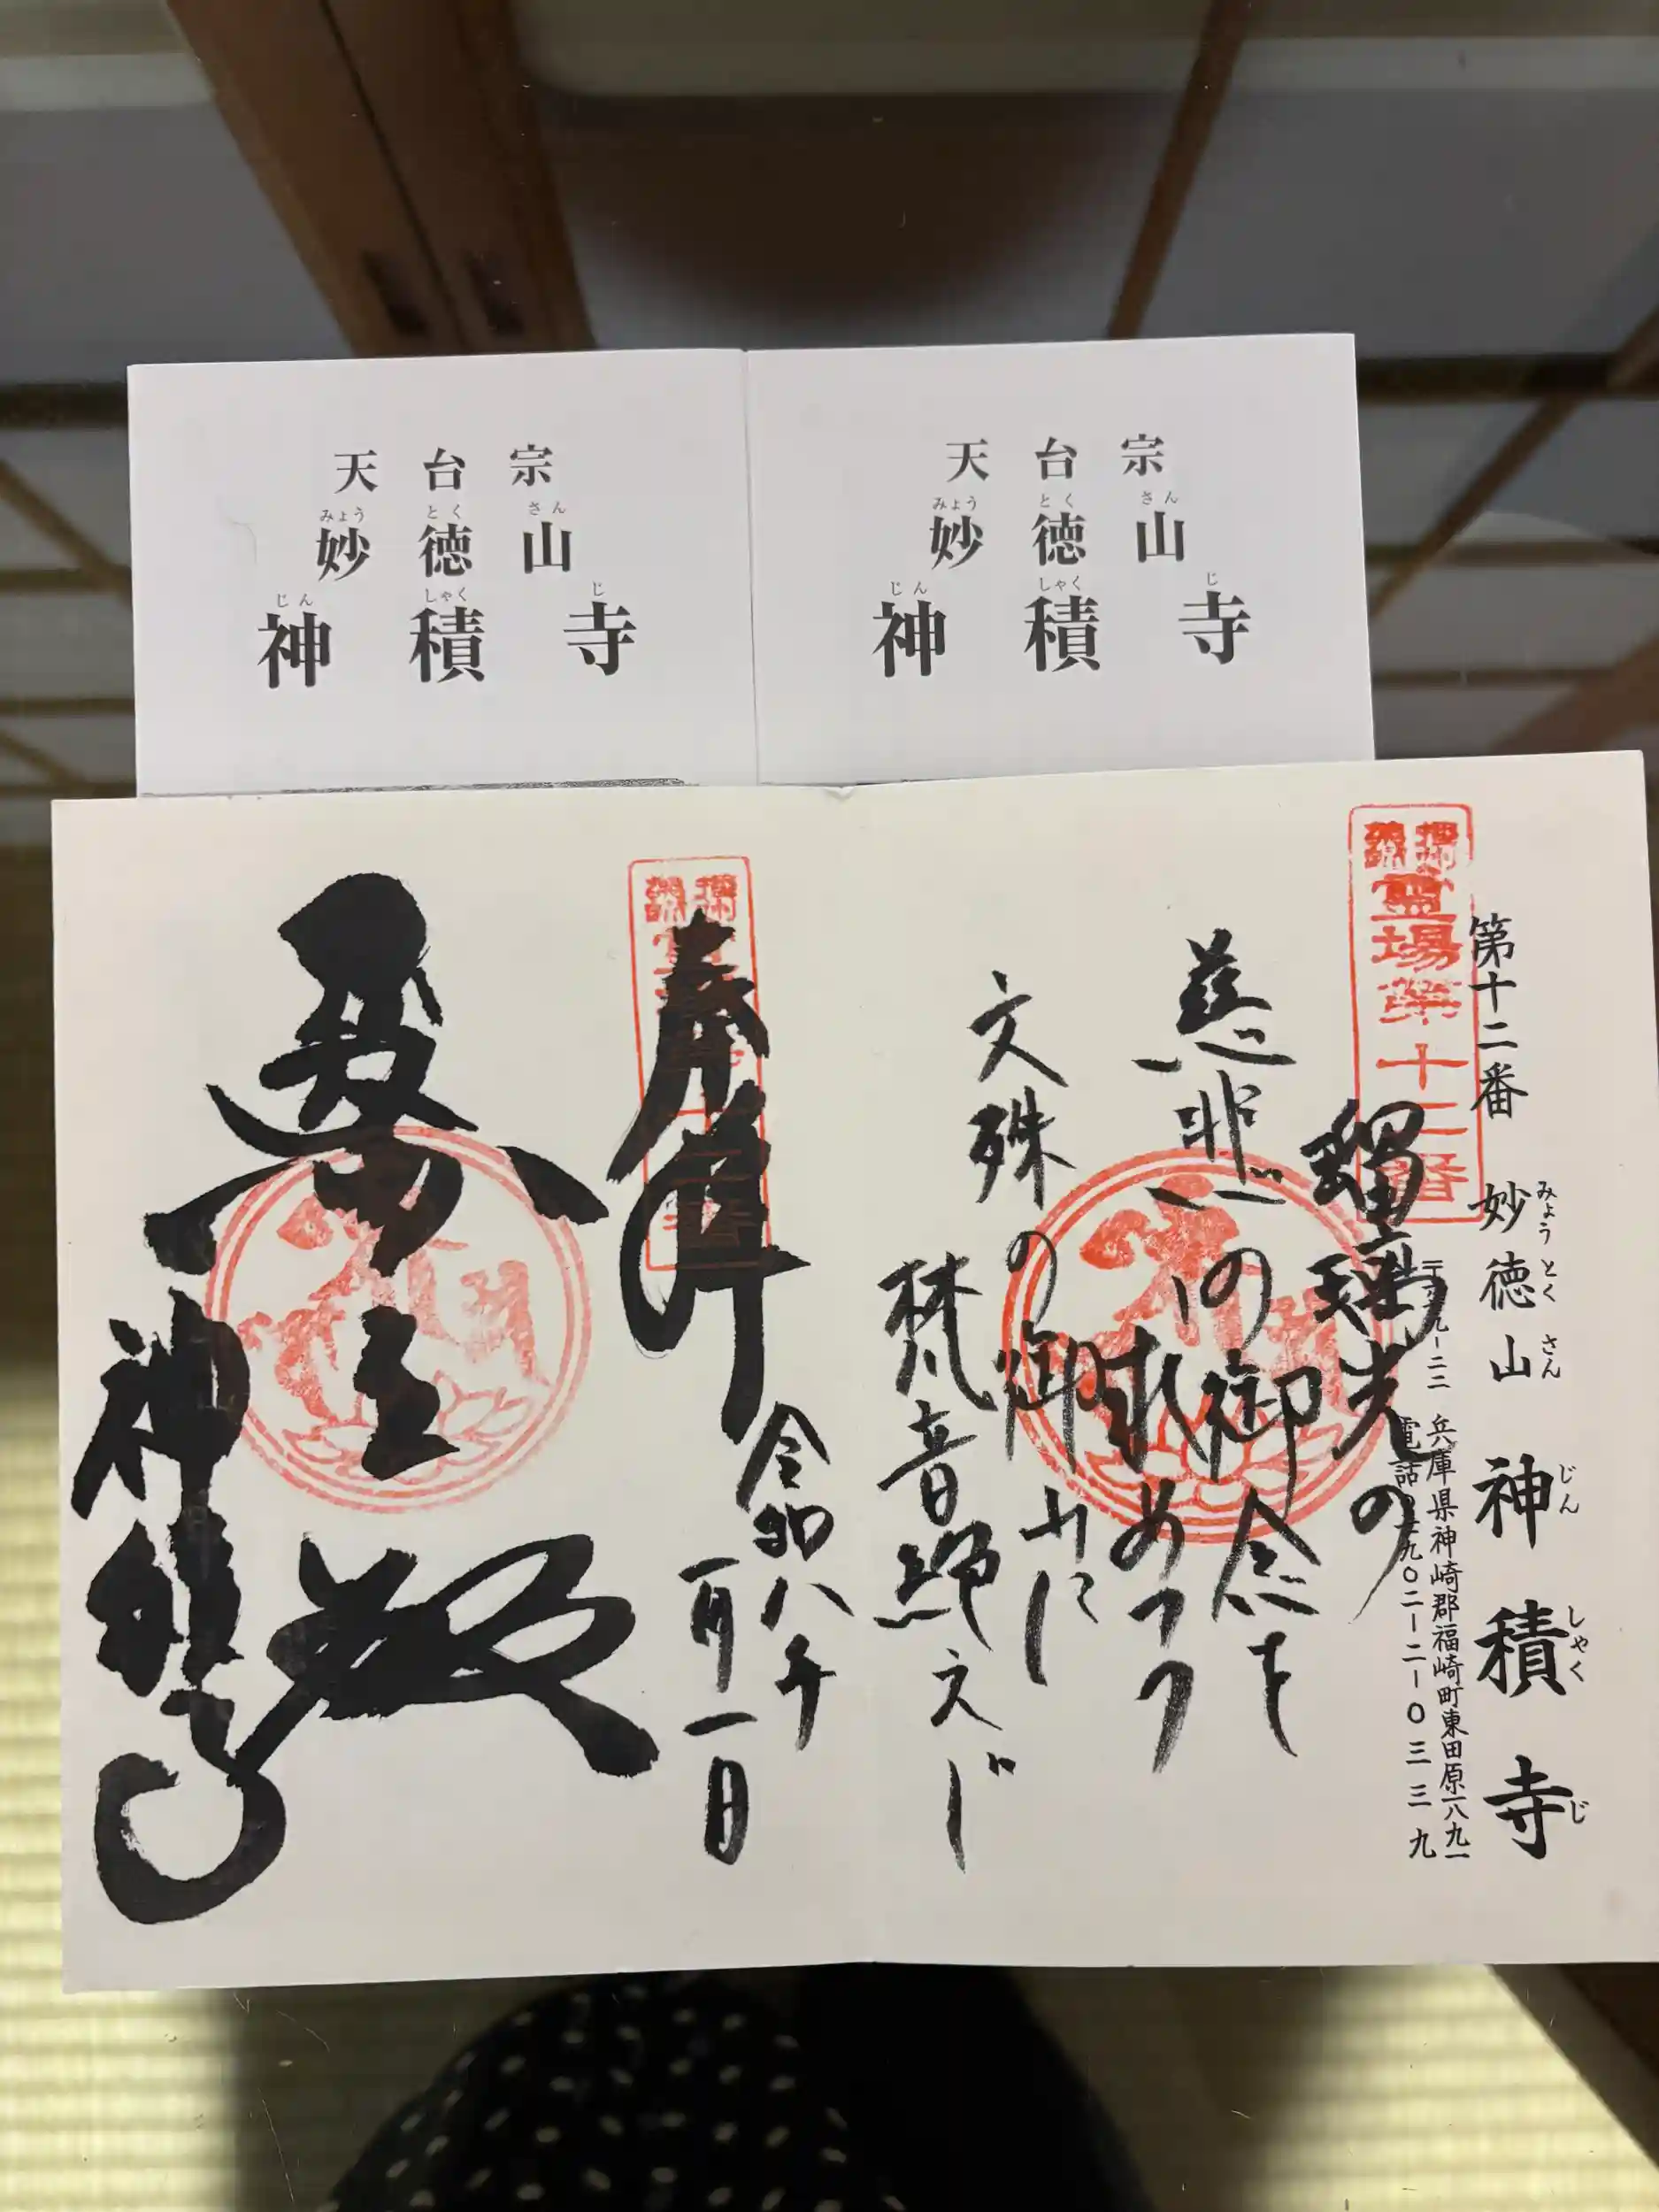 天台宗
みょうとくさん
妙徳山
じんしゃくじ
神積寺
天台宗
みょうとくさん
妙徳山
じんしゃくじ
神積寺
第十二番 妙徳山 神積寺
みょうとくさん じんしゃくじ
兵庫県神崎郡福崎町東田原一八九一
電話
二二ー〇三三九
霊場第十二番
瑠璃光の
慈悲の御念を
求めつつ
文殊の御山に
梵音
奉拝
令和八年
一月一日
神積寺